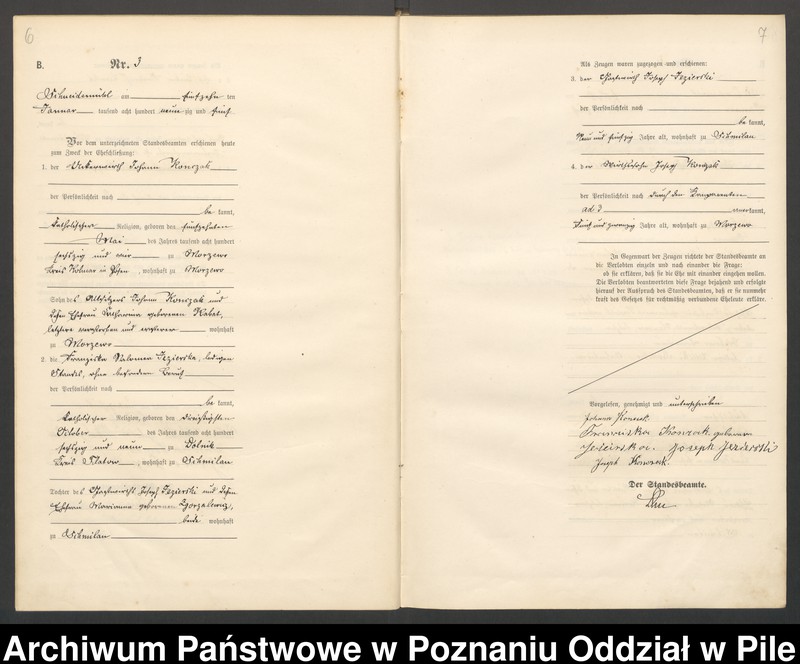 6
B.
Nr. 3
Schneidemühl am fünfzehn ten
Januar tausend acht hundert neun zig und fünf
Vor dem unterzeichneten Standesbeamten erschienen heute
zum Zweck der Eheschließung:
1. der Johann Konczak
der Persönlichkeit nach
be kannt,
katholischer Religion, geboren den fünfzehnten
Mai des Jahres tausend acht hundert
sechszig und vier zu Morzewo
Kreis Kolmar in Posen, wohnhaft zu Morzewo
Sohn des Altsitzers Johann Konczak und
dessen Ehefrau Catharina geborenen Kabat,
letztere verstorben und ersterer wohnhaft
zu Morzewo
2. die Franziska Salomea Jezierska, ledigen
Standes, ohne besonderen Beruf
der Persönlichkeit nach
be kannt,
katholischer Religion, geboren den dreißigsten
Oktober des Jahres tausend acht hundert
sechszig und neun zu Dolnik
Kreis Flatow, wohnhaft zu Schmilau
Tochter des Gastwirths Joseph Jezierski und dessen
Ehefrau Marianna geborenen
beide wohnhaft
zu Schmilau
7
Als Zeugen waren zugezogen und erschienen:
3. der Gastwirth Joseph Jezierski
der Persönlichkeit nach
be kannt,
neun und fünfzig Jahre alt, wohnhaft zu Schmilau
4. der Wirthssohn Joseph Konczak
der Persönlichkeit nach durch den Comparenten
ad 3 anerkannt,
fünf und zwanzig Jahre alt, wohnhaft zu Morzewo
In Gegenwart der Zeugen richtete der Standesbeamte an
die Verlobten einzeln und nach einander die Frage:
ob sie erklären, daß sie die Ehe mit einander eingehen wollen.
Die Verlobten beantworteten diese Frage bejahend und erfolgte
hierauf der Ausspruch des Standesbeamten, daß er sie nunmehr
kraft des Gesetzes für rechtmäßig verbundene Eheleute erkläre.
Vorgelesen, genehmigt und unterschrieben
Johann Konczak
Franziska Konczak geborene
Jezierska. Joseph Jezierski
Joseph Konczak
Der Standesbeamte.
Archiwum Państwowe w Poznaniu Oddział w Pile